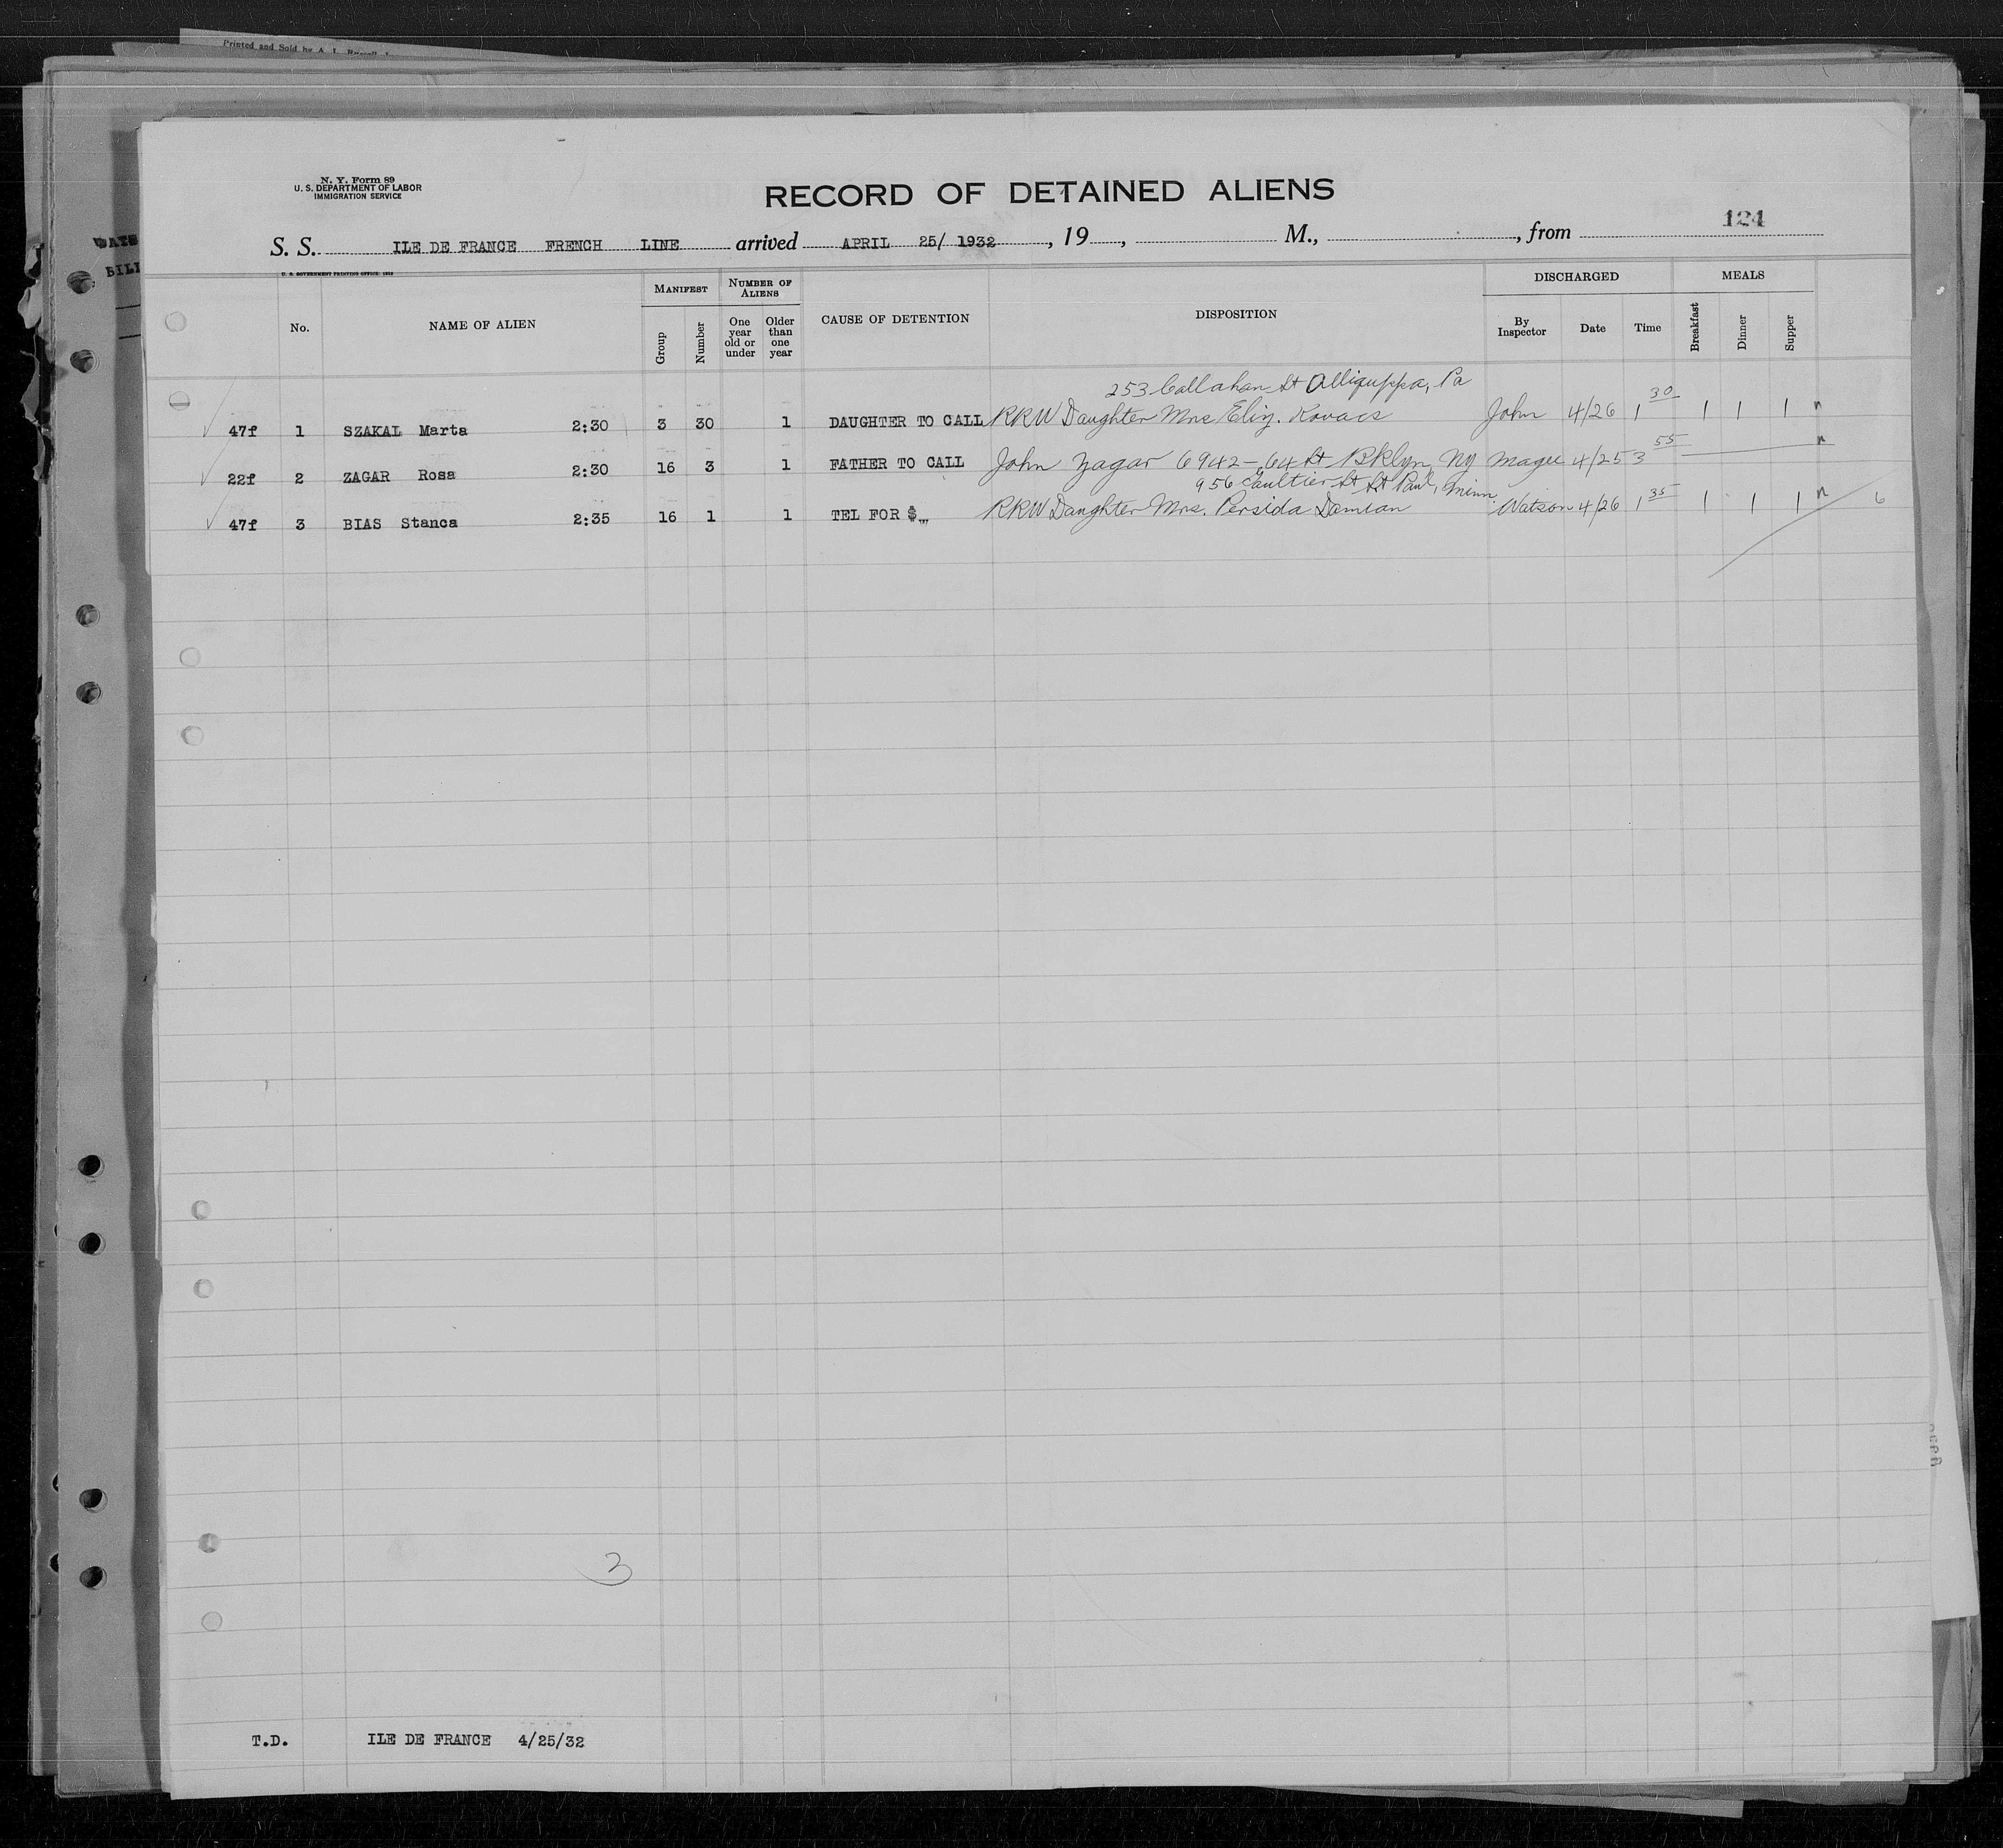 Printed and Sold by A. L.
N. Y. Form 89
U. S. DEPARTMENT OF LABOR
IMMIGRATION SERVICE
RECORD OF DETAINED ALIENS
124
S. S. ILE DE FRANCE FRENCH LINE arrived APRIL 25/ 1932, 19, M., , from
U. S. GOVERNMENT PRINTING OFFICE
No. NAME OF ALIEN MANIFEST Group Number NUMBER OF ALIENS One year old or under Older than one year CAUSE OF DETENTION DISPOSITION DISCHARGED By Inspector Date Time MEALS Breakfast Dinner Supper
253 Callahan St Alliquppa, Pa
47f 1 SZAKAL Marta 2:30 3 30 1 DAUGHTER TO CALL RRW Daughter Mrs Eliz. Kovacs John 4/26 1 30 1 1 1 n
22f 2 ZAGAR Rosa 2:30 16 3 1 FATHER TO CALL John Zagar 6942-64 St Bklyn NY Magee 4/25 3 55 n
956 Gaultier St St Paul, Minn.
47f 3 BIAS Stanca 2:35 16 1 1 TEL FOR $ RRW Daughter Mrs. Persida Damian Watson 4/26 1 35 1 1 1 n 6
3
T.D. ILE DE FRANCE 4/25/32